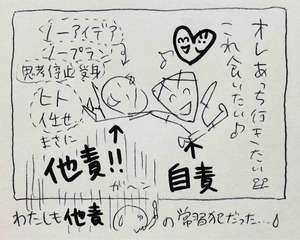 オレあっち行きたい!!
これ食いたい♪
ノーアイデア
ノープラン
思考停止受身
ヒト
任せ
まさに
他責!!
自責
が〜ン
わたしも他責
の常習犯だった…♪